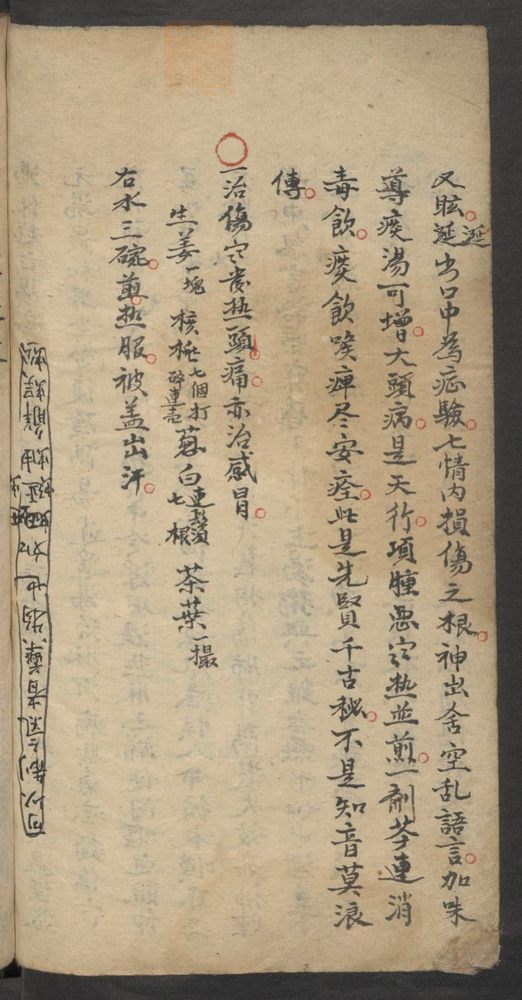 又眩涎出口中為症驗七情内損傷之根神出舍空乱語言加味
涎
導痰湯可增大頭病是天行項腫恶寒热並煎一剤芩連消
毒飲痰飲喉痺尽安痊此是先賢千古秘不是知音莫浪
傳
一治傷寒發热頭痛亦治感冒
生姜一塊 核桃七個打碎連壳 葱白連鬚七根 茶葉一撮
右水三碗煎热服被盖出汗